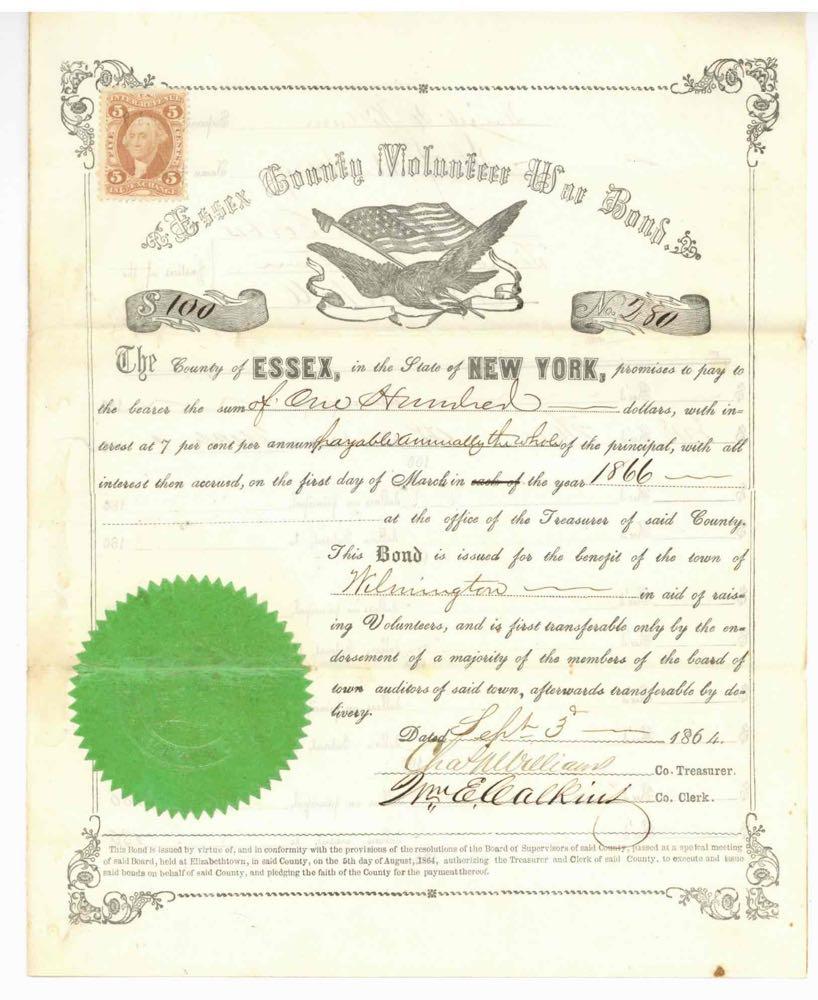 U.S.
INTER. REVENUE
5 5
FIVE CENTS
5 5
INLD EXCHANGE
Essex County Volunteer War Bond.
$ 100
No. 280
The County of ESSEX, in the State of NEW YORK, promises to pay to
the bearer the sum of One Hundred dollars, with in-
terest at 7 per cent per annum, payable annually the whole of the principal, with all
interest then accrued, on the first day of March in each of the year 1866
at the office of the Treasurer of said County.
This Bond is issued for the benefit of the town of
Wilmington in aid of rais-
ing Volunteers, and is first transferable only by the en-
dorsement of a majority of the members of the board of
town auditors of said town, afterwards transferable by de-
livery.
Dated Sept 3d 1864.
Chas N Williams Co. Treasurer.
Wm. E. Calkins Co. Clerk.
This Bond is issued by virtue of, and in conformity with the provisions of the resolutions of the Board of Supervisors of said County, passed at a special meeting
of said Board, held at Elizabethtown, in said County, on the 5th day of August, 1864, authorizing the Treasurer and Clerk of said County, to execute and issue
said bonds on behalf of said County, and pledging the faith of the County for the payment thereof.